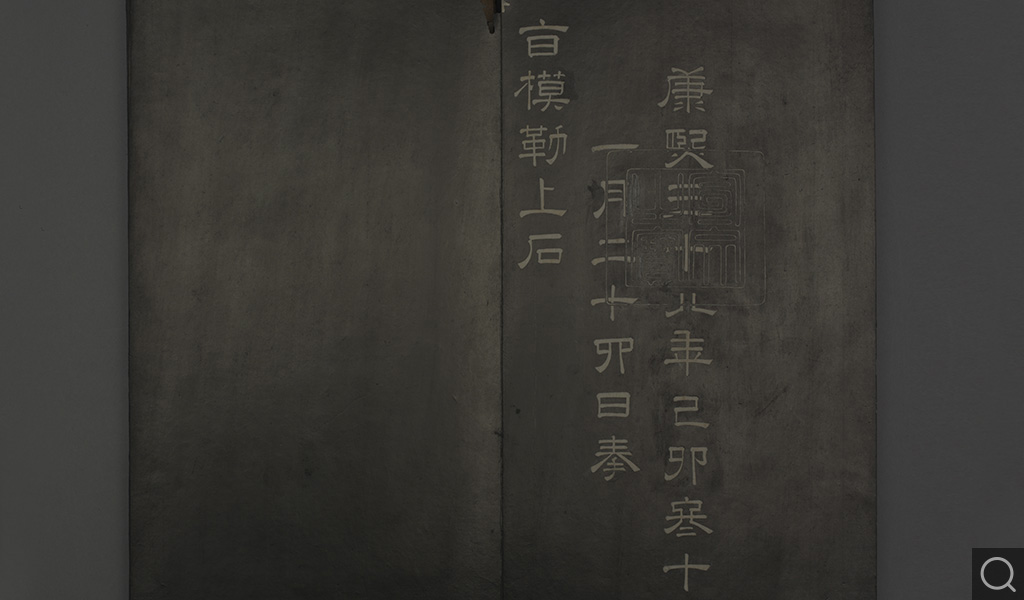 康熙三十八年己卯冬十
一月二十四日奉
旨模勒上石